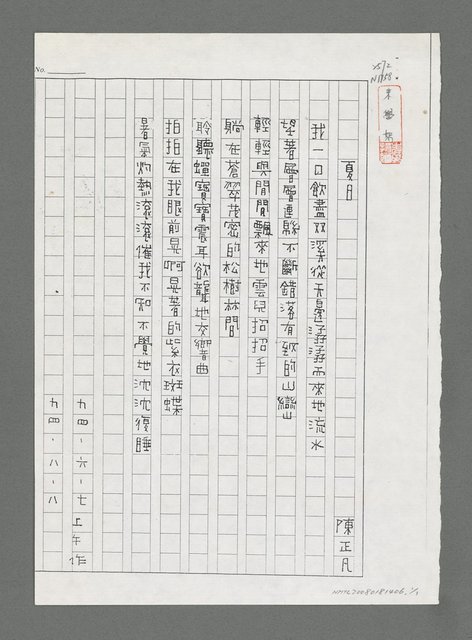 No.
夏日
陳正凡
我一口飲盡双溪從天邊涓涓而來地流水
望著層層連緜不斷錯落有致的山巒
輕輕與閒閒飄來地雲兒招招手
躺在蒼翠茂密的松樹林間
聆聽蟬寶寶震耳欲聾地交響曲
拍拍在我眼前晃啊晃著的紫衣斑蝶
暑氣灼熱滾滾催我不知不覺地沈沈復睡
九四·六·七上午作
九四·八·八
NMTL20080181406. 1/1